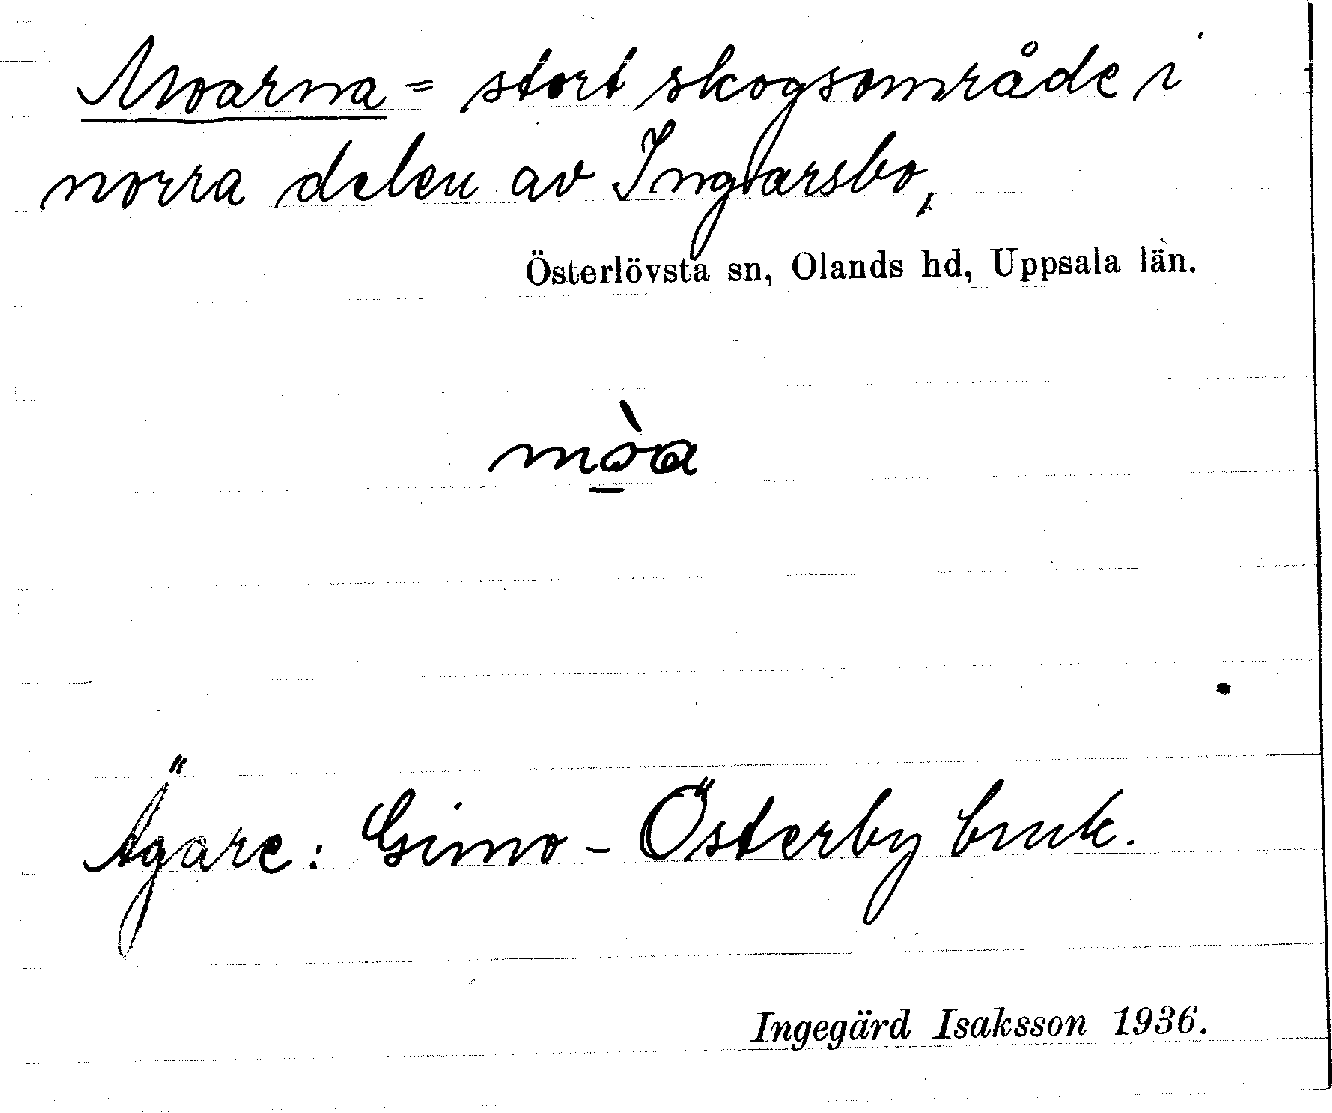 Moarna = stort skogsområde i
norra delen av Ingvarsbo,
Österlövsta sn, Olands hd, Uppsala län.
mò̲a
Ägare: Gimo - Österby bruk.
Ingegärd Isaksson 1936.